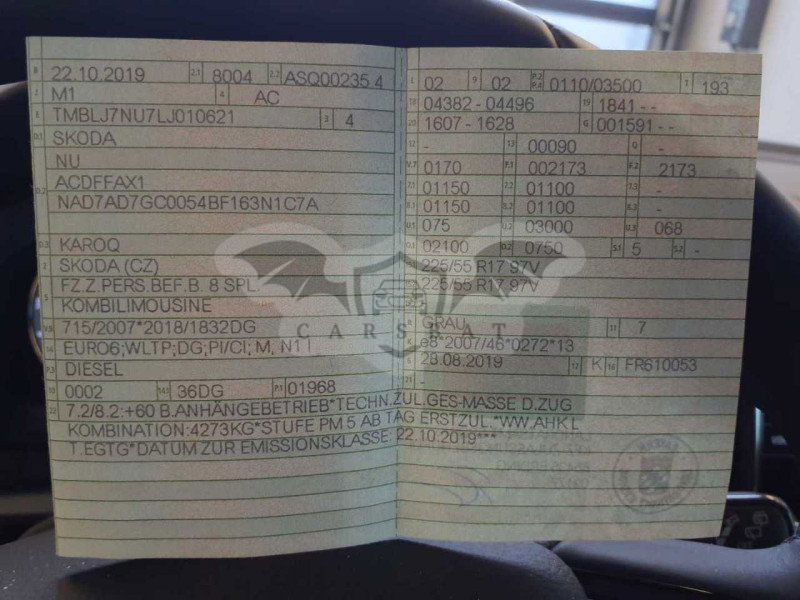 B 22.10.2019 2.1 8004 2.2 ASQ00235 4
J M1 4 AC
E TMBLJ7NU7LJ010621 3 4
D.1 SKODA
NU
D.2 ACDFFAX1
NAD7AD7GC0054BF163N1C7A
D.3 KAROQ
2 SKODA (CZ)
5 FZ.Z.PERS.BEF.B. 8 SPL.
KOMBILIMOUSINE
V.9 715/2007*2018/1832DG
14 EURO6;WLTP;DG;PI/CI; M, N1 I
P.3 DIESEL
10 0002 14.1 36DG P.1 01968
L 02 9 02 P.2 P.4 0110/03500 T 193
18 04382 - 04496 19 1841 - -
20 1607 - 1628 G 001591 - -
12 - 13 00090 Q -
V.7 0170 F.1 002173 F.2 2173
7.1 01150 7.2 01100 7.3 -
8.1 01150 8.2 01100 8.3 -
U.1 075 U.2 03000 U.3 068
O.1 02100 O.2 0750 S.1 5 S.2 -
225/55 R17 97V
225/55 R17 97V
R GRAU 11 7
K e8*2007/46*0272*13
6 28.08.2019 17 K 16 FR610053
21 -
22 7.2/8.2:+60 B.ANHÄNGEBETRIEB*TECHN.ZUL.GES-MASSE D.ZUG
KOMBINATION:4273KG*STUFE PM 5 AB TAG ERSTZUL.*WW.AHK L
T.EGTG*DATUM ZUR EMISSIONSKLASSE: 22.10.2019***
CARSBAT